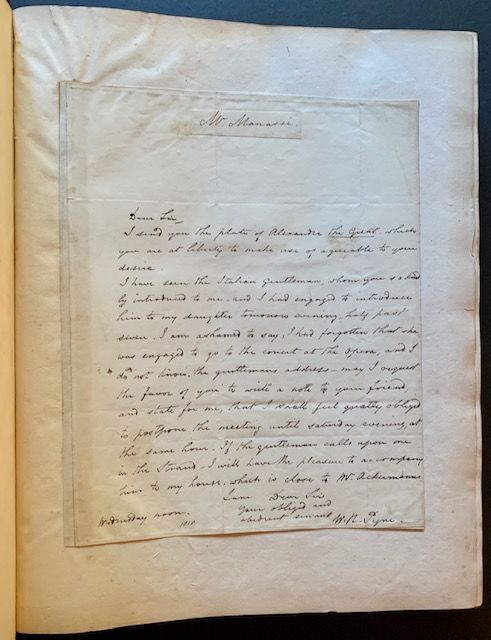 Mr. Manassi.
Dear Sir_
I send you the plate of Alexander the Great, which
you are at liberty to make use of agreeable to your
desire.
I have seen the Italian Gentleman, whom you so kind
ly introduced to me - and I had engaged to introduce
him to my daughter tomorrow evening, half past
seven. I am ashamed to say, I had forgotten that she
was engaged to go to the concert at the opera, and I
do not know, the gentlemans address - may I request
the favor of you to write a note to your friend,
and state for me, that I shall feel greatly obliged
to postpone the meeting until saturday evening, at
the same hour. If the gentleman calls upon me
in the Strand - I will have the pleasure to accompany
him to my house, which is close to Mr. Ackermanns
I am Dear Sir
your obliged and
obedient servant
Wednesday noon. W. H. Pyne